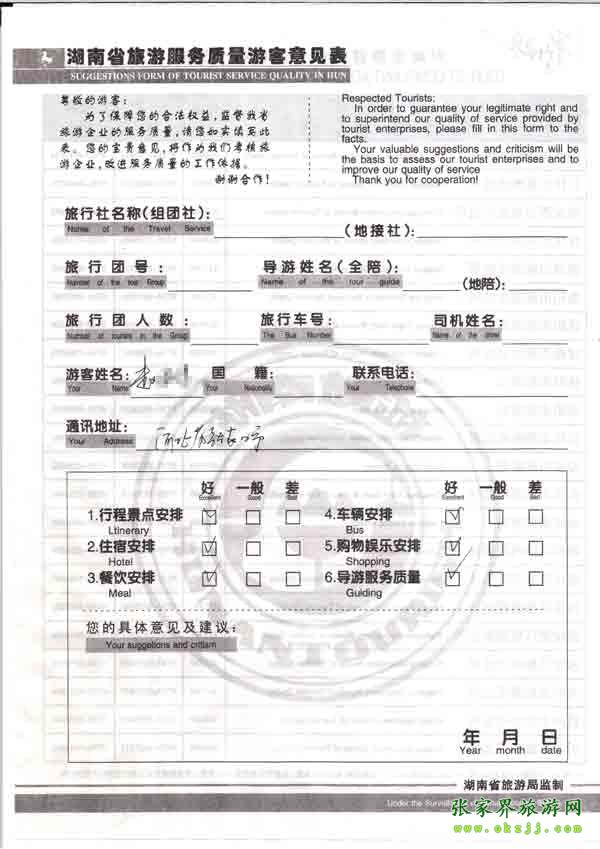 湖南省旅游服务质量游客意见表
SUGGESTIONS FORM OF TOURIST SERVICE QUALITY IN HUN
尊敬的游客：
为了保障您的合法权益，监督我省
旅游企业的服务质量，请您如实填写此
表。您的宝贵意见，将作为我们考核旅
游企业，改进服务质量的工作依据。
谢谢合作！
Respected Tourists:
In order to guarantee your legitimate right and
to superintend our quality of service provided by
tourist enterprises, please fill in this form to the
facts.
Your valuable suggestions and criticism will be
the basis to assess our tourist enterprises and to
improve our quality of service
Thank you for cooperation!
旅行社名称（组团社）： （地接社）：
Name of the Travel Service
旅行团号： 导游姓名（全陪）： （地陪）：
Number of the tour Group Name of the tour guide
旅行团人数： 旅行车号： 司机姓名：
Number of tourists in the Group The Bus Number Name of the driver
游客姓名： 国籍： 联系电话：
Your Name Your Nationality Your Telephone
通讯地址： 河北省张家口市
Your Address
好 一般 差 好 一般 差
Excellent Good Bad Excellent Good Bad
1.行程景点安排 4.车辆安排
Ltinerary Bus
2.住宿安排 5.购物娱乐安排
Hotel Shopping
3.餐饮安排 6.导游服务质量
Meal Guiding
您的具体意见及建议：
Your suggetions and critism
年 月 日
Year month date
湖南省旅游局监制
Under the Surveill
张家界旅游网
www.okzjj.com